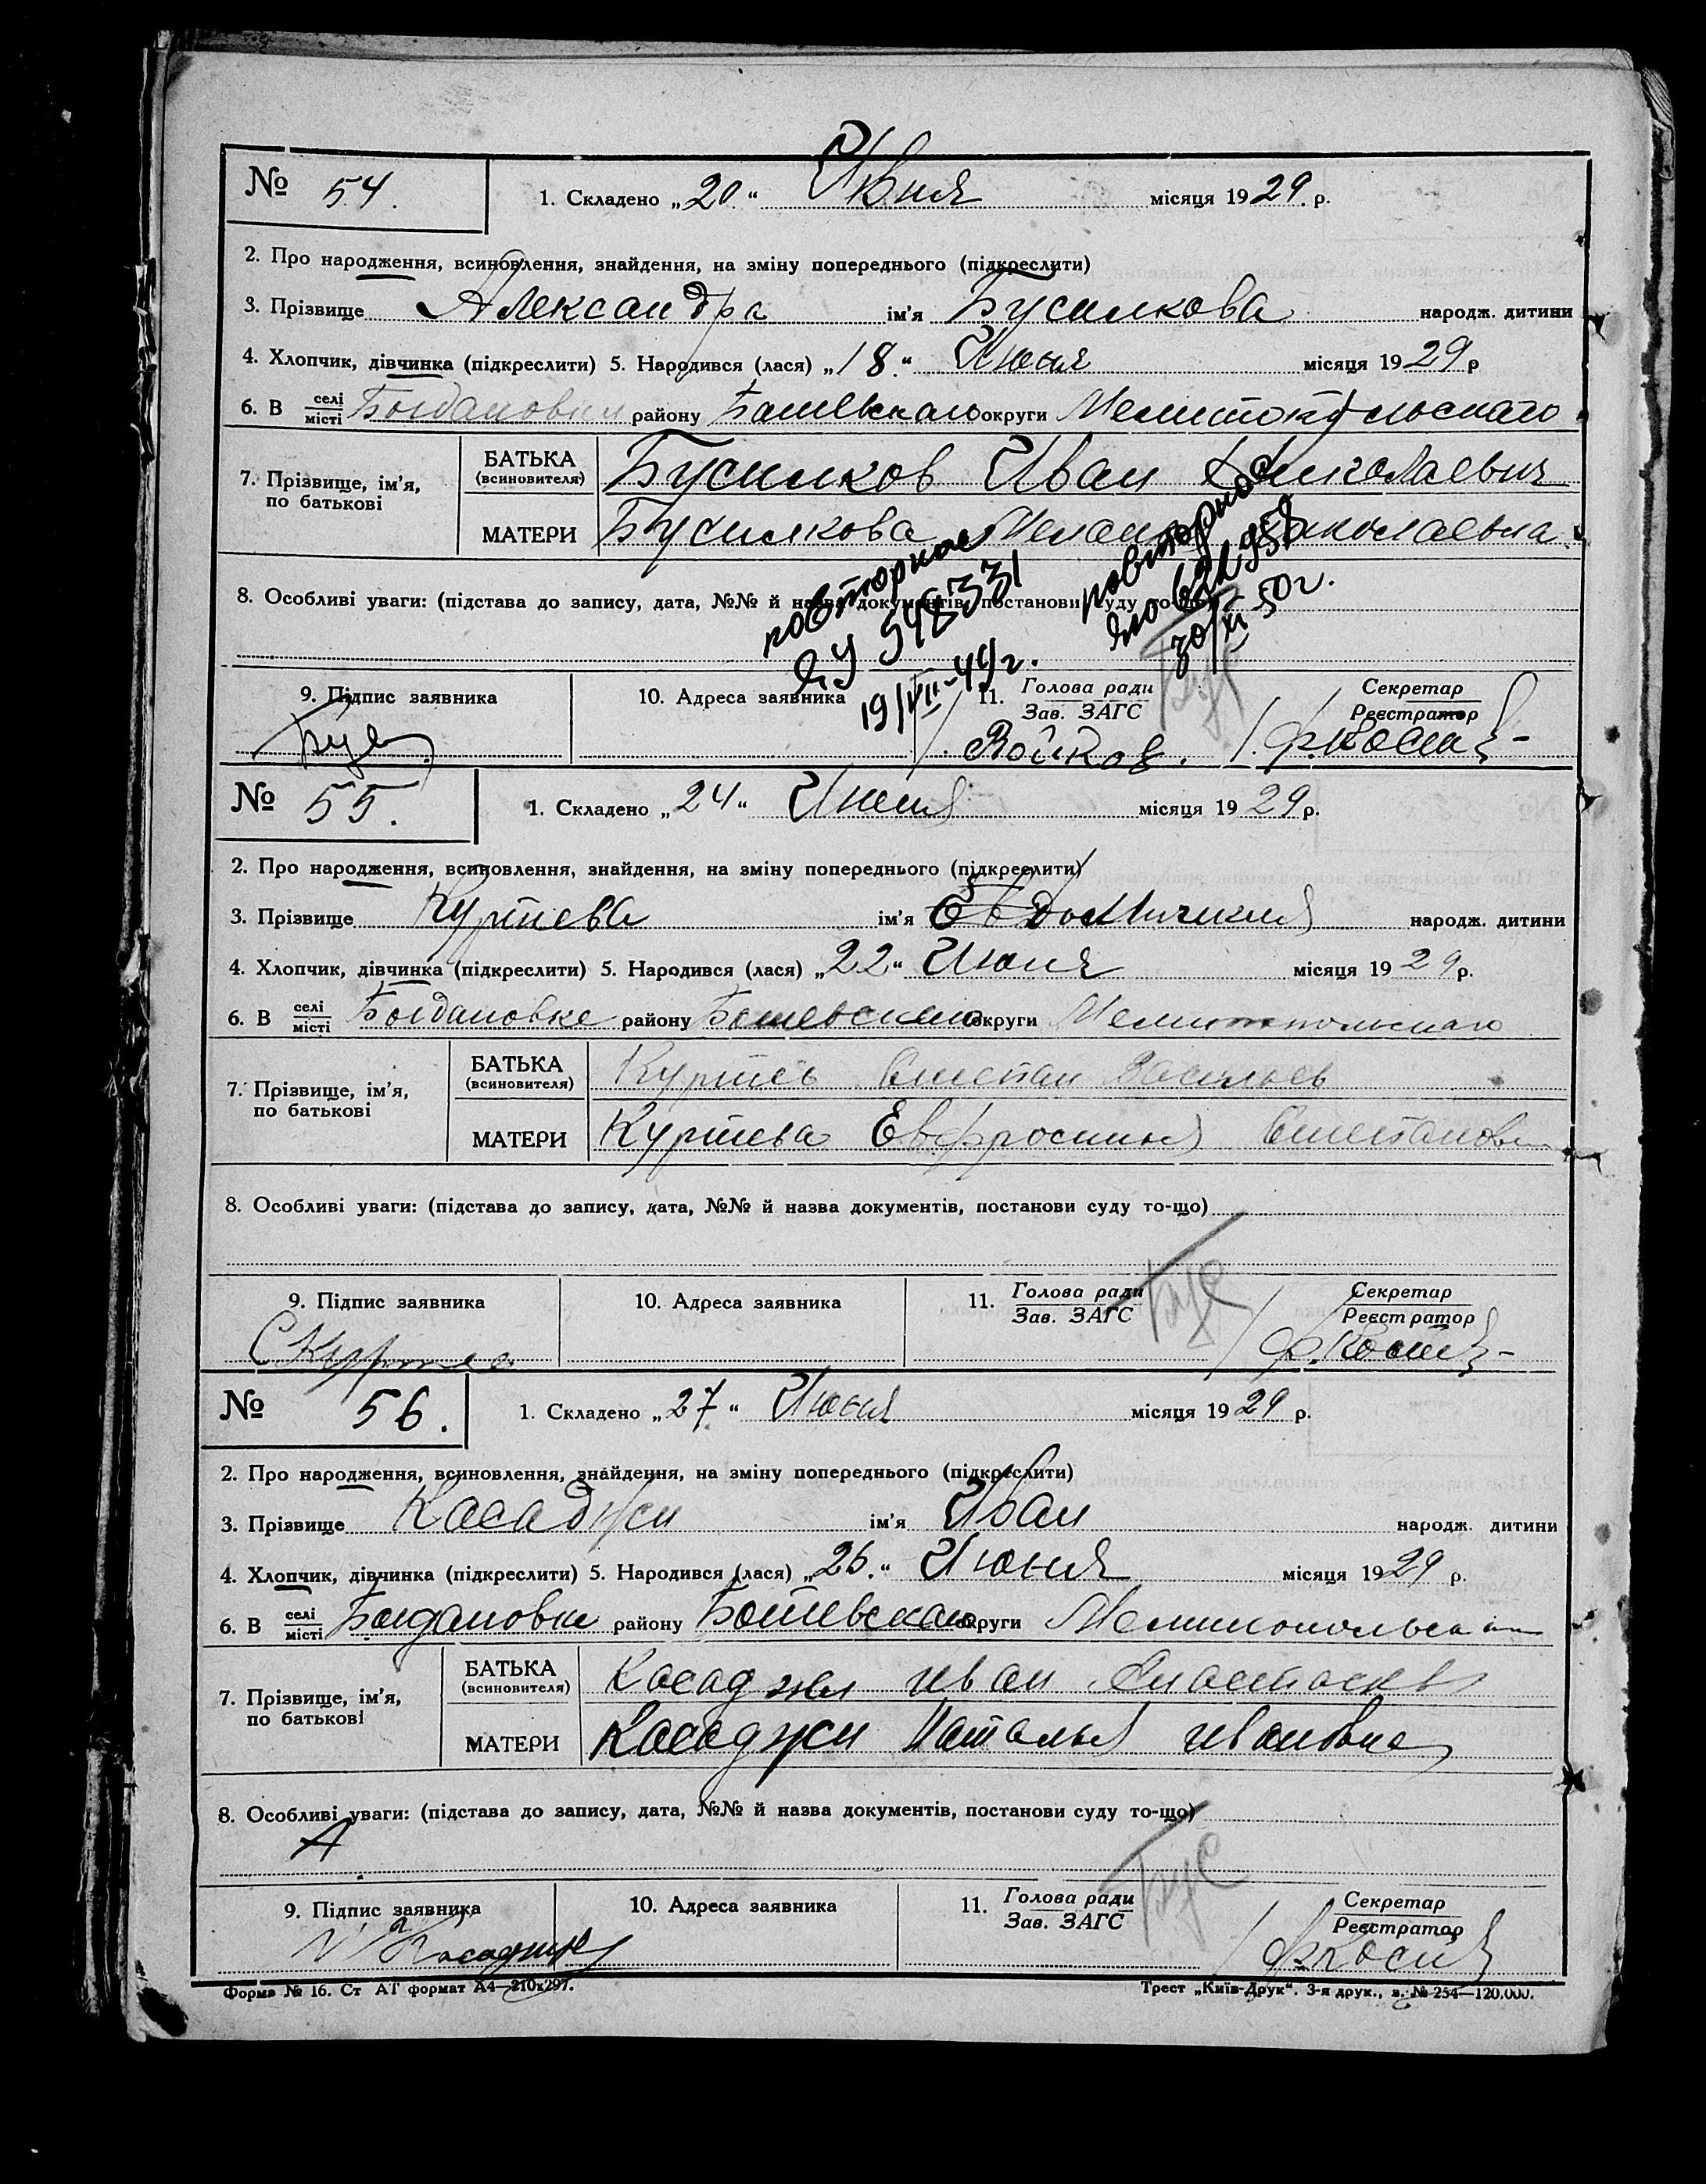 № 54. 1. Складено „20“ Июня місяця 1929. р.
2. Про народження, всиновлення, знайдення, на зміну попереднього (підкреслити)
3. Прізвище Александра ім'я Бусилкова народж. дитини
4. Хлопчик, дівчинка (підкреслити) 5. Народився (лася) „18.“ Июня місяця 1929 р
6. В селі місті Богдановки району округи
7. Прізвище, ім'я, по батькові
БАТЬКА (всиновителя) Бусилков Иван Николаевич
МАТЕРИ Бусилкова Николаевна
8. Особливі уваги: (підстава до запису, дата, №№ й назва документів, постанови суду то-що)
повторное
548331
19/VII-49г.
повторное
30/XI 50г.
9. Підпис заявника 10. Адреса заявника 11. Голова ради Зав. ЗАГС Секретар Реєстратор
Бус Войков.
№ 55. 1. Складено „24“ Июня місяця 1929 р.
2. Про народження, всиновлення, знайдення, на зміну попереднього (підкреслити)
3. Прізвище Куртева ім'я народж. дитини
4. Хлопчик, дівчинка (підкреслити) 5. Народився (лася) „22“ Июня місяця 1929 р.
6. В селі місті Богдановке району округи Мелитопольскаго
7. Прізвище, ім'я, по батькові
БАТЬКА (всиновителя) Куртев Степан Васильев
МАТЕРИ Куртева Евфросиния
8. Особливі уваги: (підстава до запису, дата, №№ й назва документів, постанови суду то-що)
9. Підпис заявника 10. Адреса заявника 11. Голова ради Зав. ЗАГС Секретар Реєстратор
С Куртев
№ 56. 1. Складено „27“ Июня місяця 1929 р.
2. Про народження, всиновлення, знайдення, на зміну попереднього (підкреслити)
3. Прізвище Касаджи ім'я Иван народж. дитини
4. Хлопчик, дівчинка (підкреслити) 5. Народився (лася) „26.“ Июня місяця 1929 р.
6. В селі місті Богдановки району округи
7. Прізвище, ім'я, по батькові
БАТЬКА (всиновителя) Касаджи иван
МАТЕРИ Касаджи Наталья ивановна
8. Особливі уваги: (підстава до запису, дата, №№ й назва документів, постанови суду то-що)
9. Підпис заявника 10. Адреса заявника 11. Голова ради Зав. ЗАГС Секретар Реєстратор
Форма № 16. Ст АТ формат А4—210x297. Трест „Київ-Друк“. 3-я друк., з. № 254—120.000.